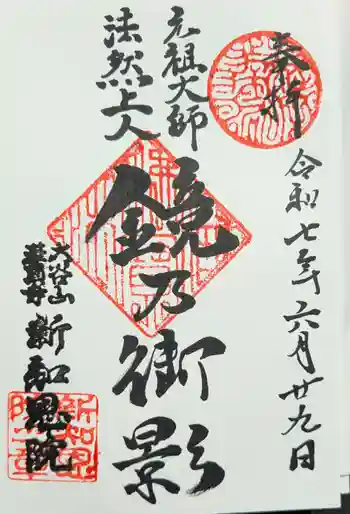 奉拝
令和七年六月廿九日
元祖大師
法然上人
鏡乃御影
大谷山
新知恩院